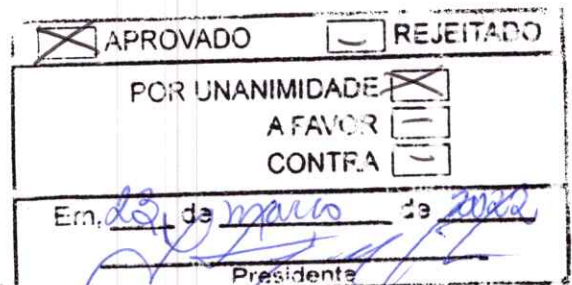 APROVADO REJEITADO
POR UNANIMIDADE
A FAVOR
CONTRA
Em, 23 de março de 2022
Presidente